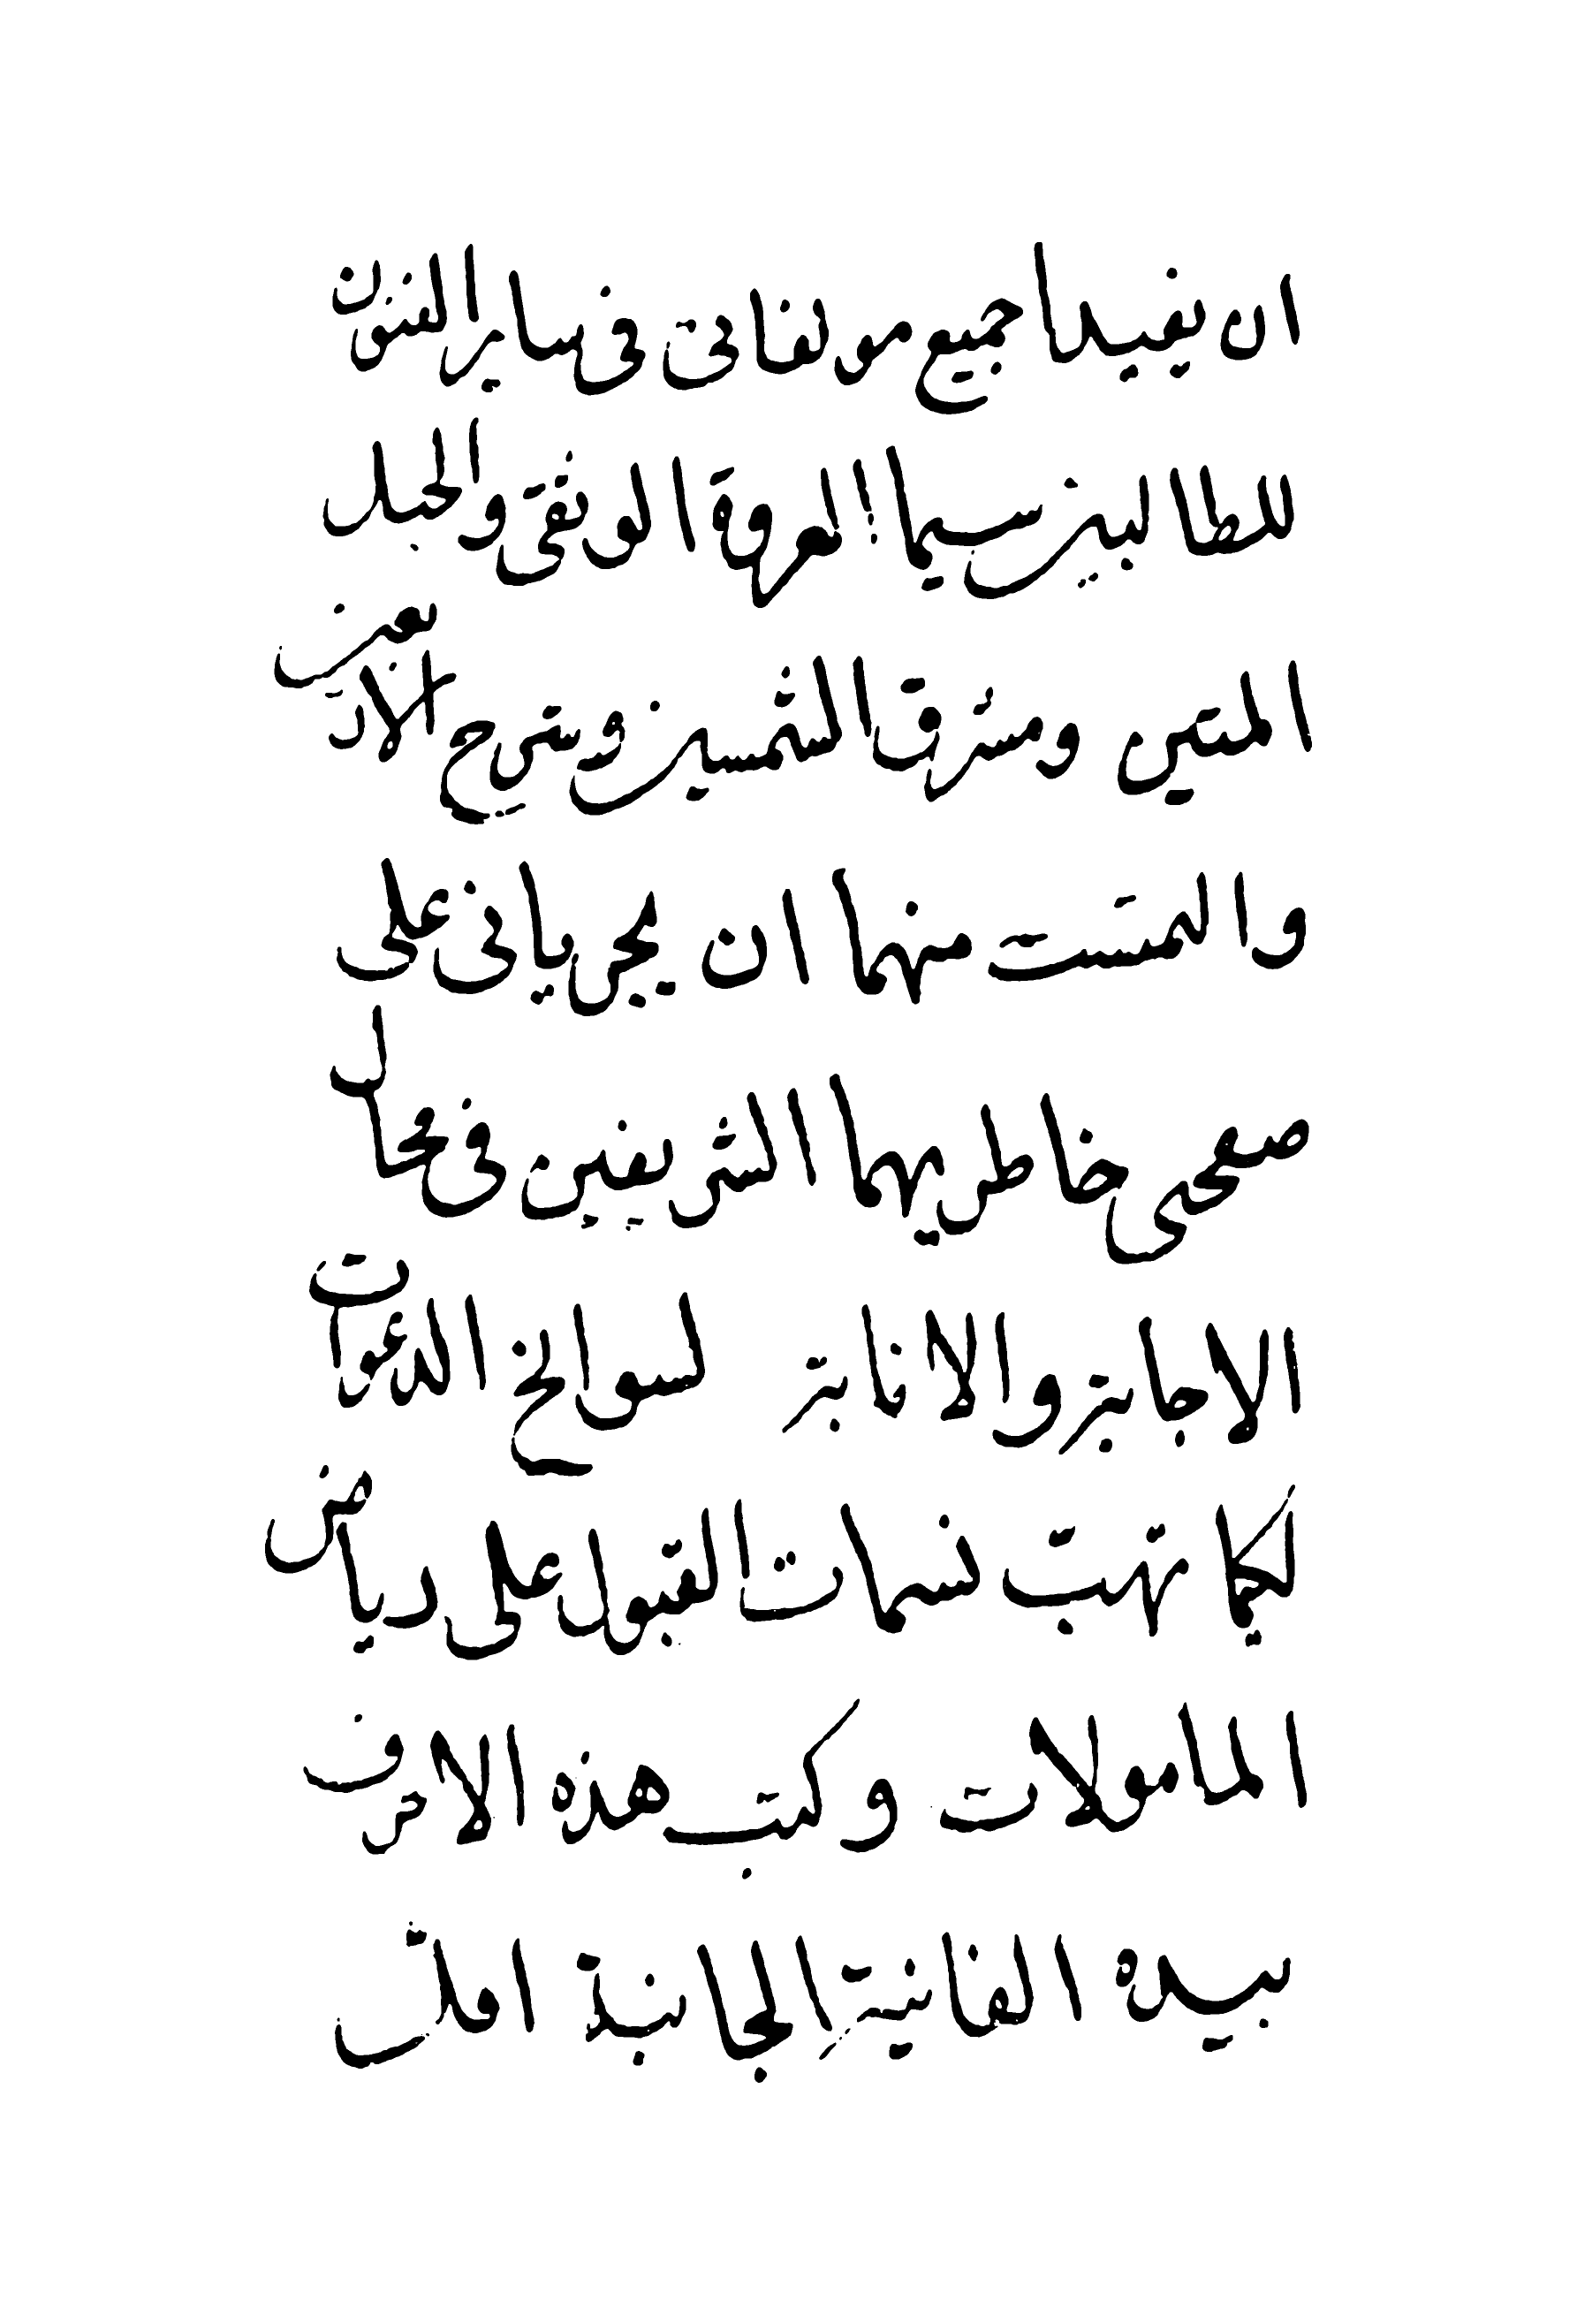 ان يفيدا جميع مولفاتى فى ساير الفنون
للطالبين سيما العروة الوثقى والحبل
المتين ومشرق الشمسين وتشريح الافلاك
والتمست منهما ان يجريانى على
صفحتى خاطريهما الشريفين فى محال
الاجابة والانابة لسوانح الدعوات
لكيما تهب نسمات القبول على رياض
المامولات وكتب هذه الاحرف
بيده الفانية الجانية اقل